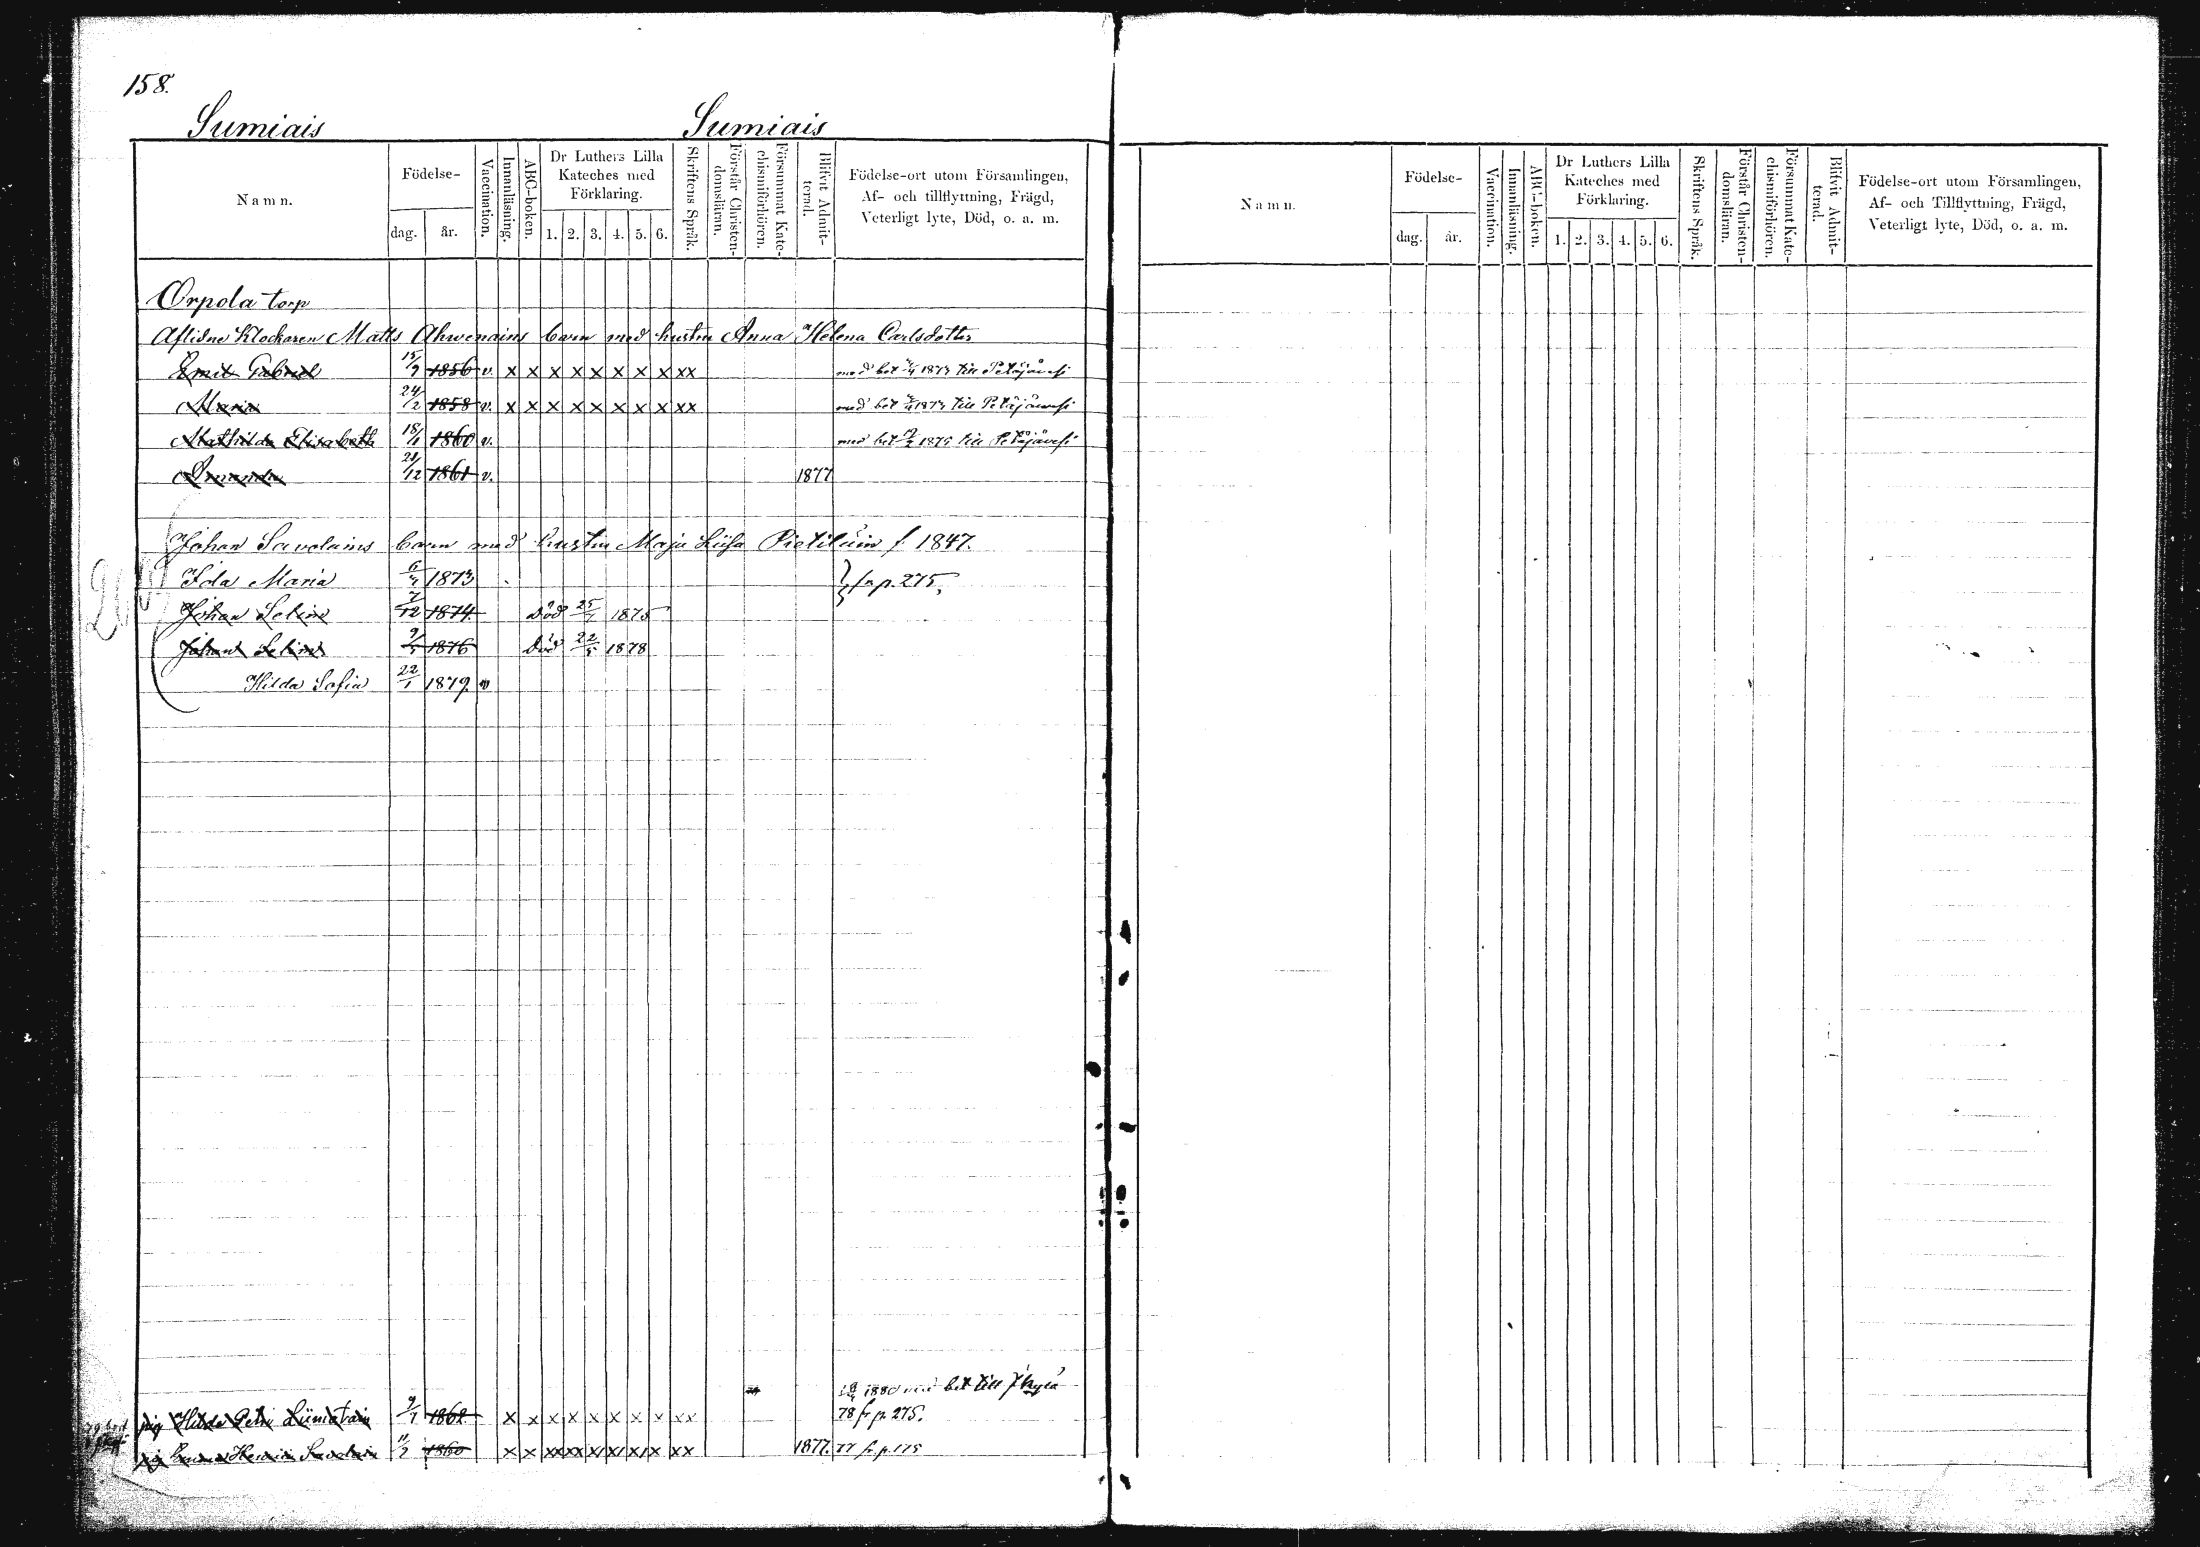 158.
Sumiais Sumiais
Namn. Födelse- dag. år. Vaccination. Innanläsning. ABC-boken. Dr Luthers Lilla Kateches med Förklaring. 1. 2. 3. 4. 5. 6. Skriftens Språk. Förstår Christendomsläran. Försummat Katechismiförhören. Blifvit Admitterad. Födelse-ort utom Församlingen, Af- och tillflyttning, Frägd, Veterligt lyte, Död, o. a. m.
Orpola torp
Aflidne Klockaren Matts Ahwenains barn med hustru Anna Helena Carlsdotter
Emil Gabriel 15/9 1856 v. x x x x x x x x xx med bet 1873 till Petäjävesi
Maria 24/2 1858 v. x x x x x x x x xx med bet 1873 till Petäjävesi
Mathilda Elisabeth 18/1 1860 v. med bet 1875 till Petäjävesi
Amanda 21/12 1861 v. 1877
Johan Savolains barn med hustru Maja Liisa Pietiläin f 1847.
Ida Maria 1873 } fr p. 275,
Johan Selim 7/12 1874. Död 25/7 1875
Johan Selim 1876 Död 22/5 1878
Hilda Sofia 22/1 1879. v
1880 med bet till Jkylä
pig Hilda Liimatain 1862 x x x x x x x x xx 78 fr p. 275.
pig Savolain 1860 x x xx xx x x x x xx 1877. 77 fr p. 175
Namn. Födelse- dag. år. Vaccination. Innanläsning. ABC-boken. Dr Luthers Lilla Kateches med Förklaring. 1. 2. 3. 4. 5. 6. Skriftens Språk. Förstår Christendomsläran. Försummat Katechismiförhören. Blifvit Admitterad. Födelse-ort utom Församlingen, Af- och Tillflyttning, Frägd, Veterligt lyte, Död, o. a. m.